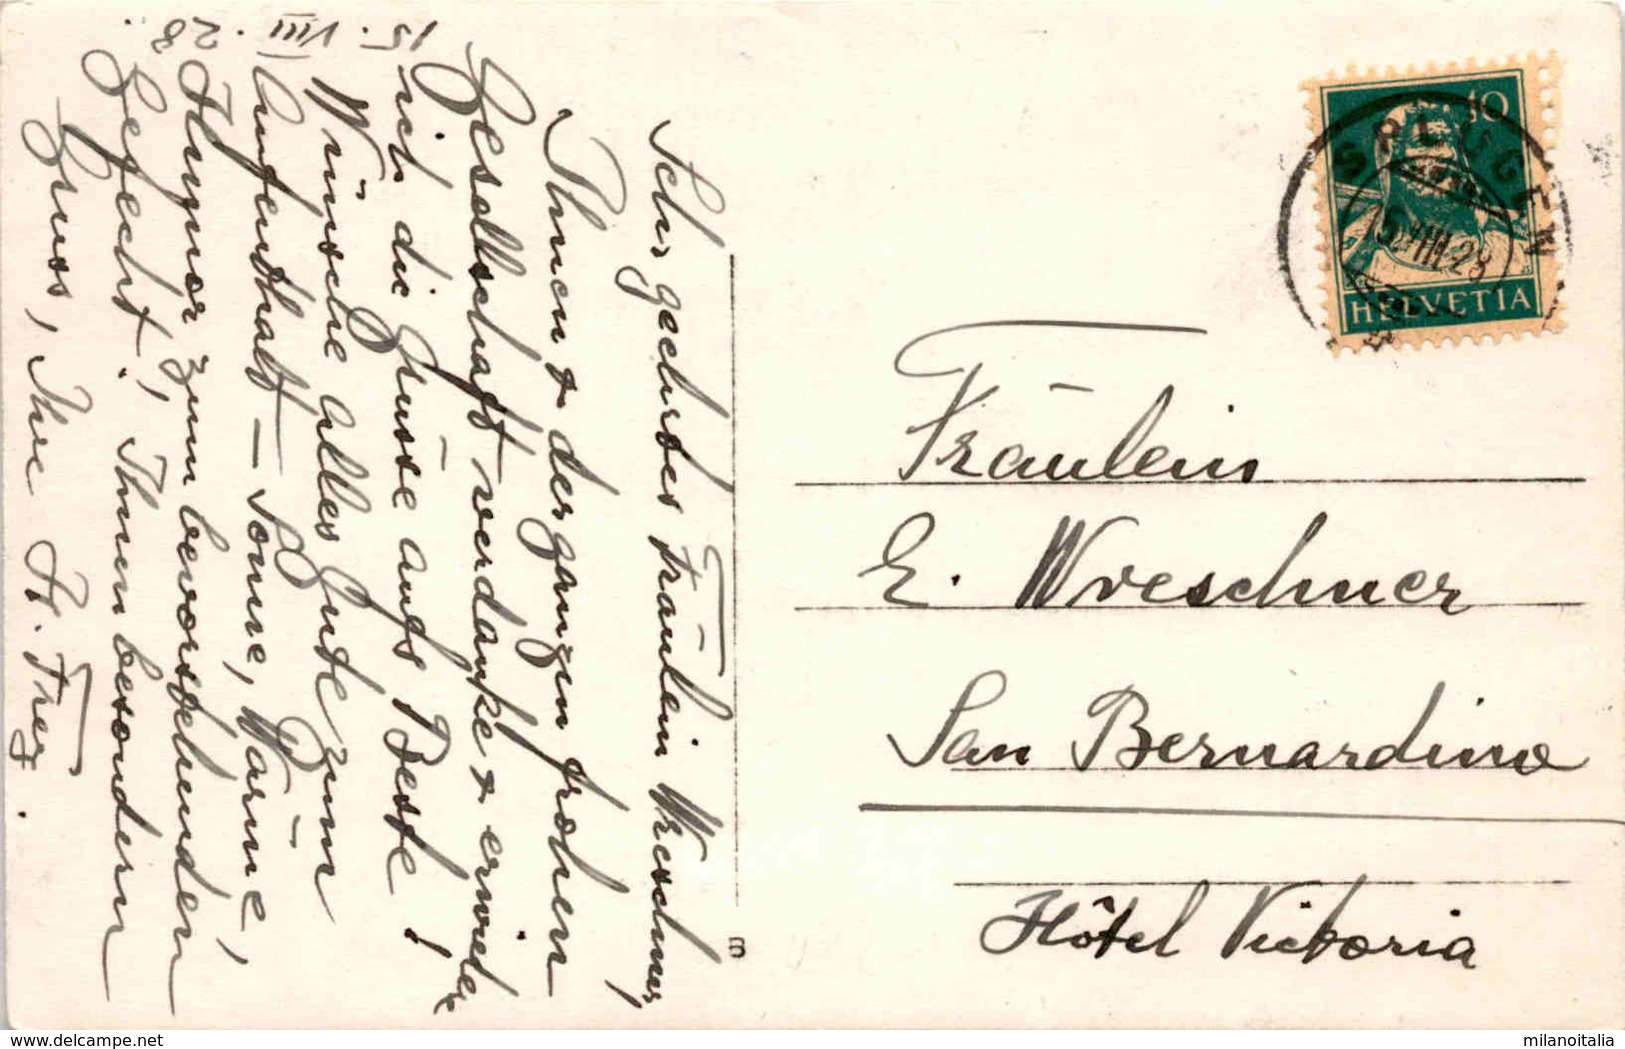 15. VIII.
28
Sehr geehrtes Fräulein Wreschner,
Ihnen & der ganzen frohen
Gesellschaft verdanke & erwidere
ich die Grüsse aufs Beste!
Wünsche alles Gute zum
Aufenthalt – Sonne, Wärme,
Humor zum bevorstehenden
Gefecht! Ihnen besondern
Gruss, Ihre H. Frey.
10
HELVETIA
SPLÜGEN
15. VIII. 28
Fräulein
E. Wreschner
San Bernardino
Hôtel Victoria
milanoitalia